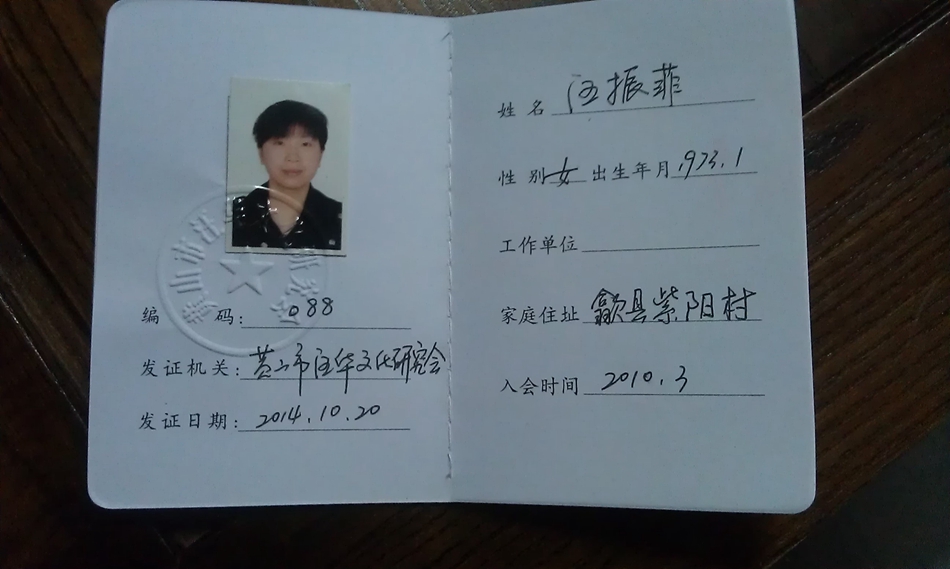 编 码: 088
发证机关: 黄山市汪华文化研究会
发证日期: 2014.10.20
姓 名 汪振菲
性 别 女 出生年月 1973.1
工作单位
家庭住址 歙县紫阳村
入会时间 2010.3